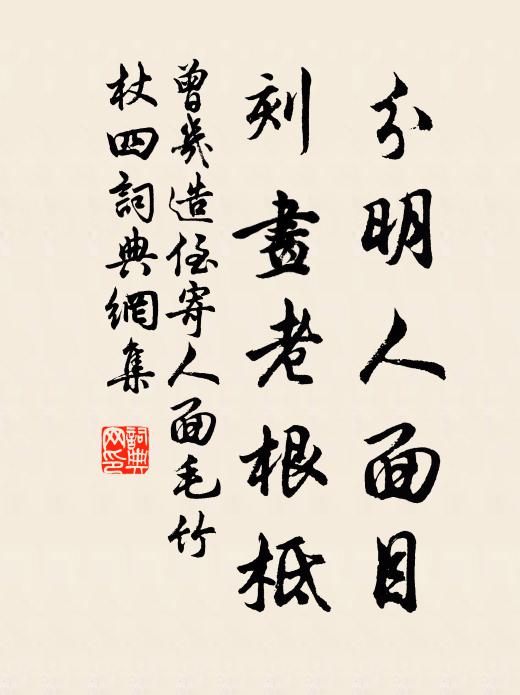 分明人面目
刻畫老根柢
曾幾造侄寄人面毛竹
杖四詞典網集
詞典網印